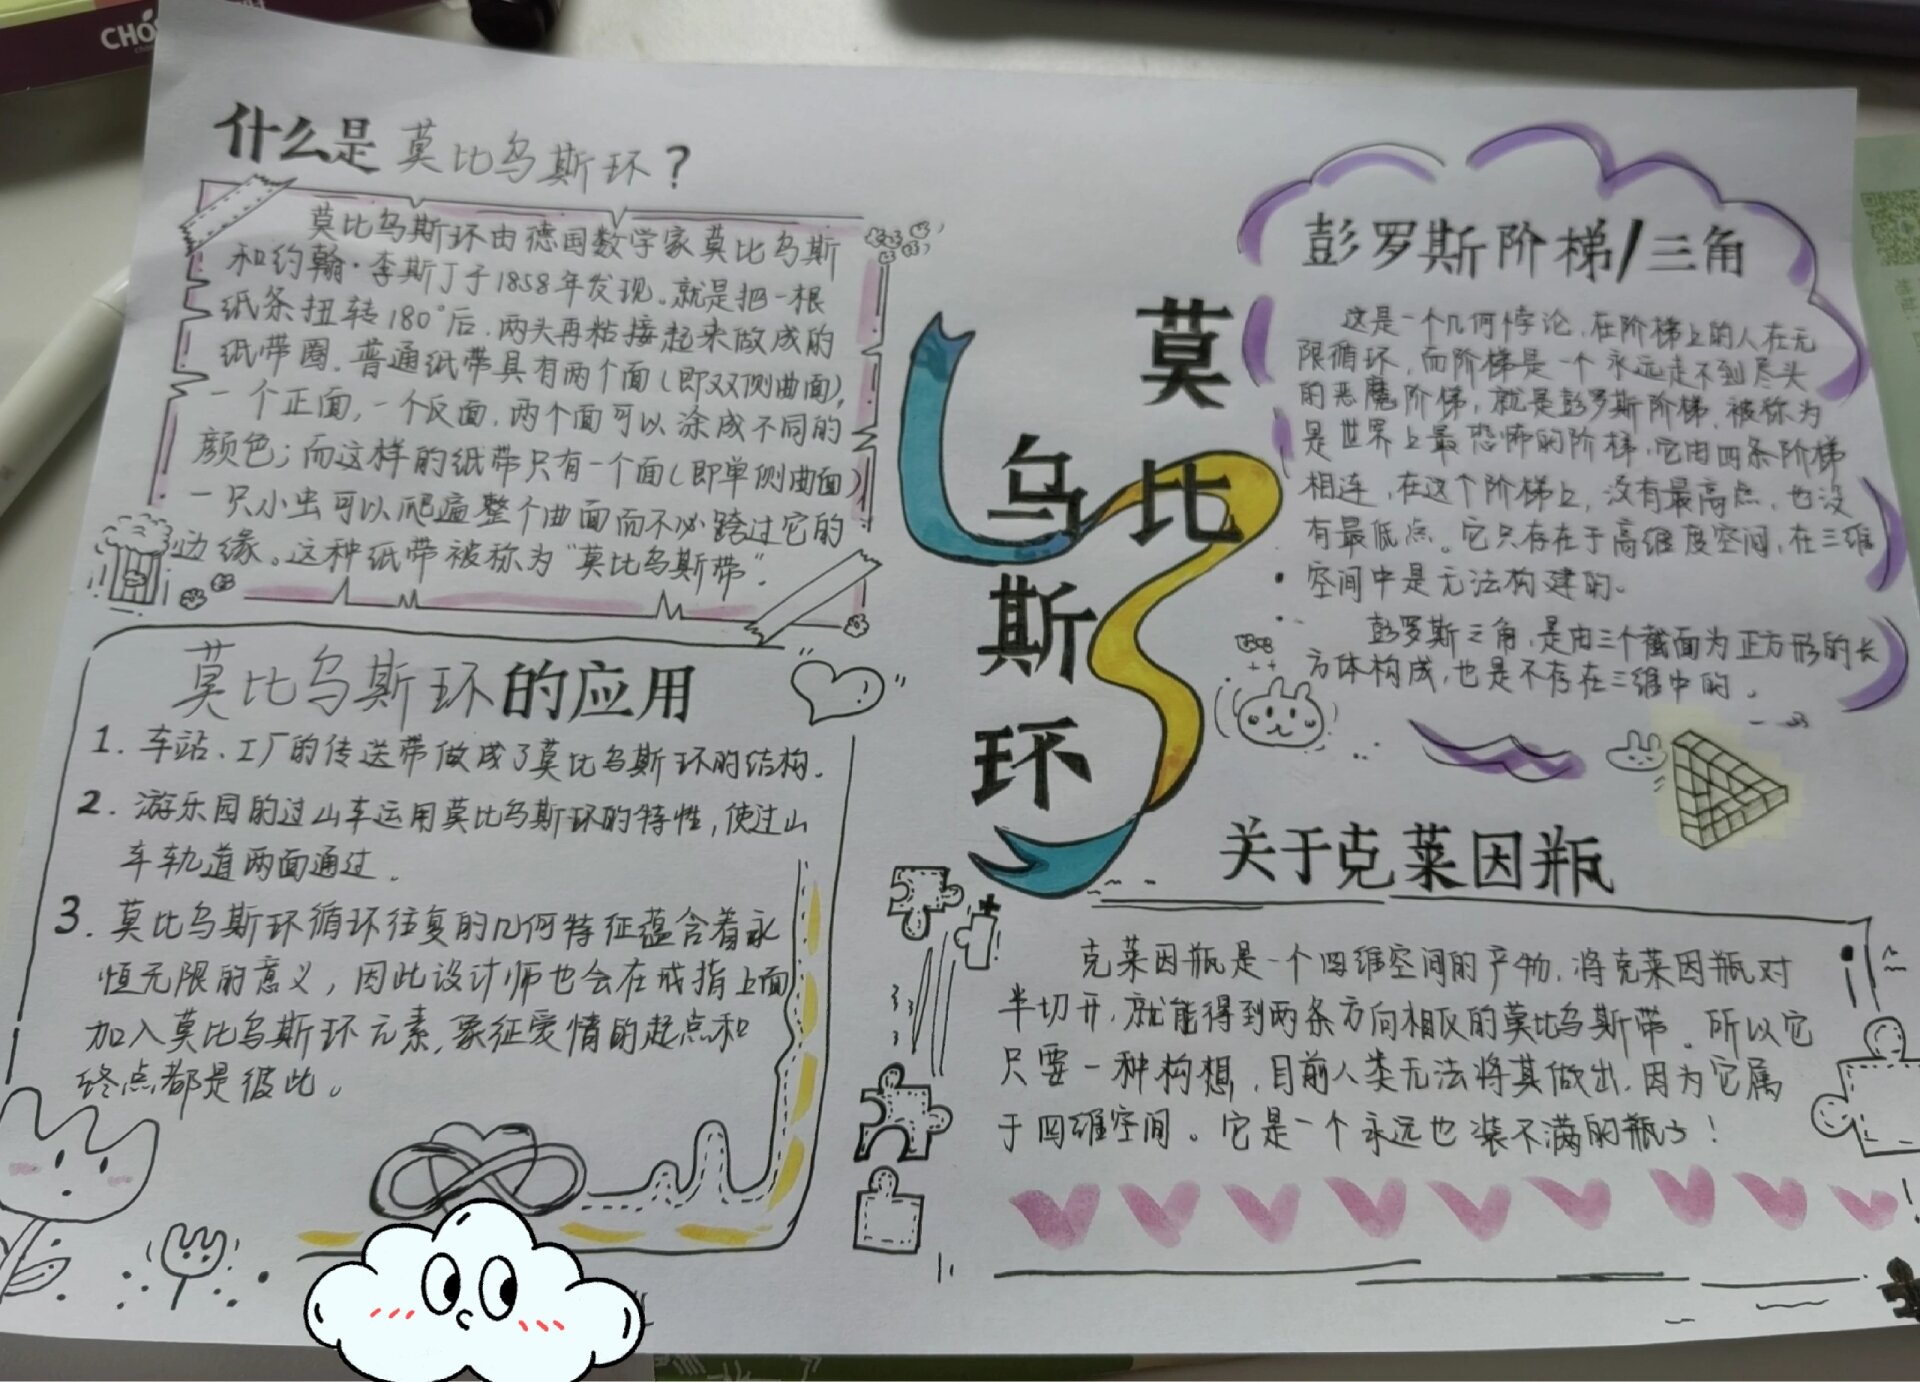 CHO
什么是莫比乌斯环？
莫比乌斯环由德国数学家莫比乌斯
和约翰·李斯丁于1858年发现。就是把一根
纸条扭转180°后，两头再粘接起来做成的
纸带圈。普通纸带具有两个面（即双侧曲面），
一个正面，一个反面，两个面可以涂成不同的
颜色；而这样的纸带只有一个面（即单侧曲面）
一只小虫可以爬遍整个曲面而不必跨过它的
边缘。这种纸带被称为“莫比乌斯带”.
莫比乌斯环的应用
1. 车站、工厂的传送带做成了莫比乌斯环的结构.
2. 游乐园的过山车运用莫比乌斯环的特性，使过山
车轨道两面通过.
3. 莫比乌斯环循环往复的几何特征蕴含着永
恒无限的意义，因此设计师也会在戒指上面
加入莫比乌斯环元素，象征爱情的起点和
终点都是彼此。
莫比乌斯环
彭罗斯阶梯/三角
这是一个几何悖论，在阶梯上的人在无
限循环，而阶梯是一个永远走不到尽头
的恶魔阶梯，就是彭罗斯阶梯，被称为
是世界上最恐怖的阶梯，它由四条阶梯
相连，在这个阶梯上，没有最高点，也没
有最低点。它只存在于高维度空间，在三维
空间中是无法构建的。
彭罗斯三角，是由三个截面为正方形的长
方体构成，也是不存在三维中的。
关于克莱因瓶
克莱因瓶是一个四维空间的产物，将克莱因瓶对
半切开，就能得到两条方向相反的莫比乌斯带。所以它
只要一种构想，目前人类无法将其做出，因为它属
于四维空间。它是一个永远也装不满的瓶子！